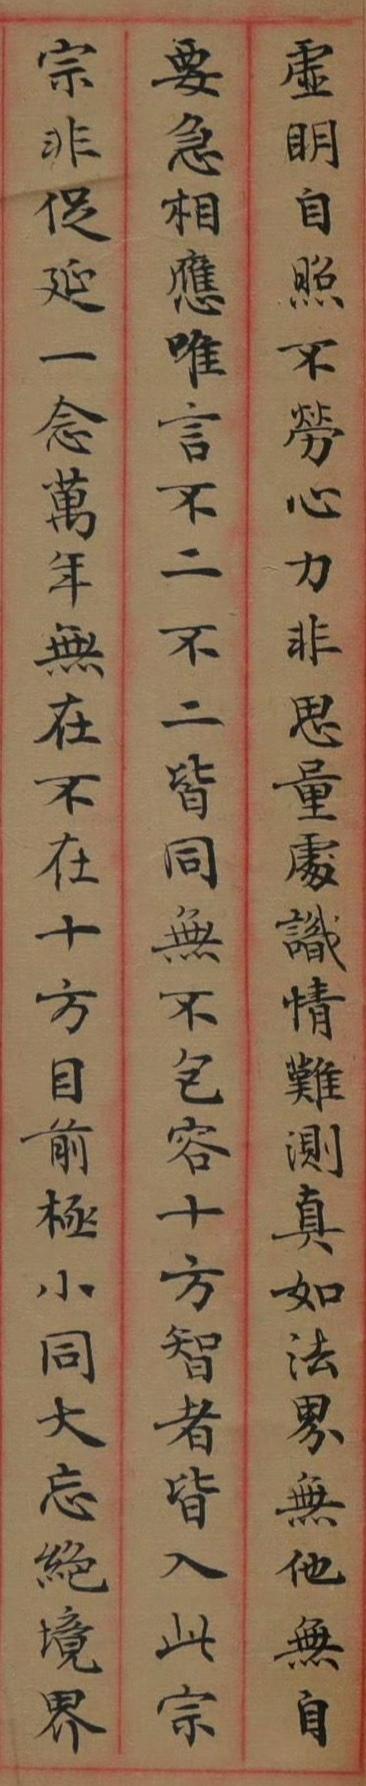 虛明自照不勞心力非思量處識情難測真如法界無他無自
要急相應唯言不二不二皆同無不包容十方智者皆入此宗
宗非促延一念萬年無在不在十方目前極小同大忘絕境界